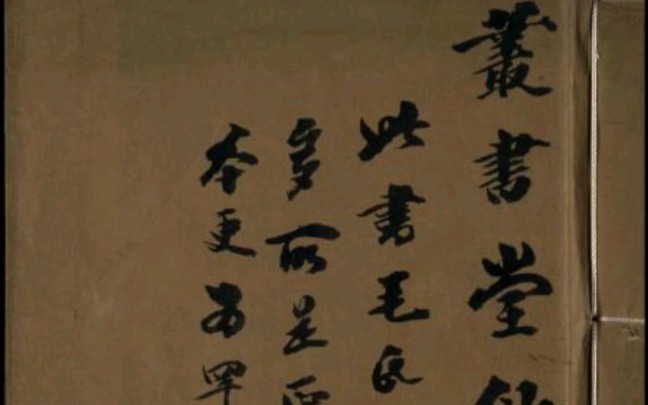 叢書堂
此書毛氏
多所是
本更為罕